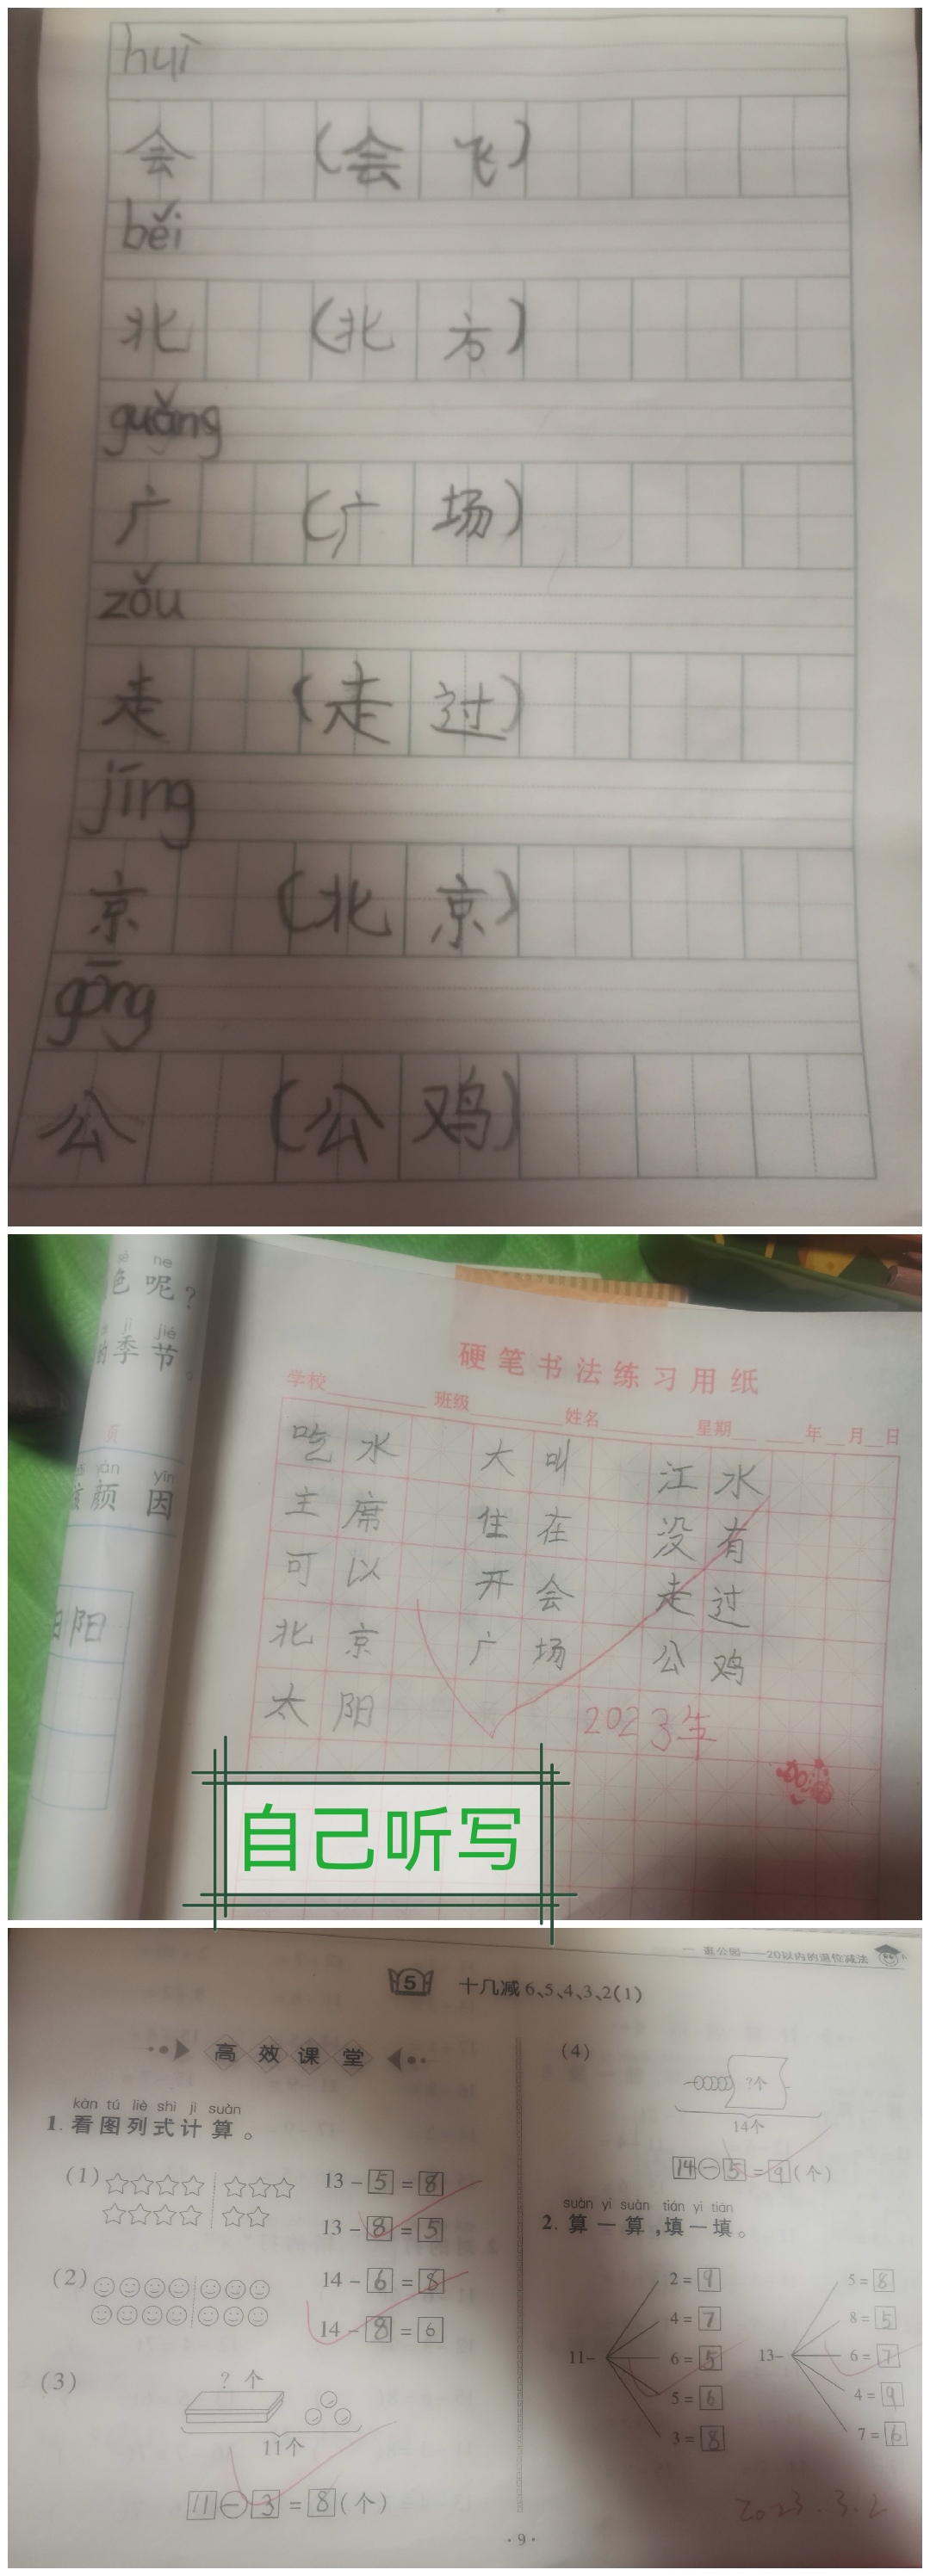 huì
会 (会 飞)
běi
北 (北 方)
guǎng
广 (广 场)
zǒu
走 (走 过)
jīng
京 (北 京)
gōng
公 (公 鸡)
sè ne
色 呢？
jì jié
季 节。
yán yīn
颜 因
阳
硬笔书法练习用纸
学校 班级 姓名 星期 年 月 日
吃水 大叫 江水
主席 住在 没有
可以 开会 走过
北京 广场 公鸡
太阳 2023年
自己听写
一 逛公园——20以内的退位减法
5 十几减6、5、4、3、2(1)
高效课堂
kàn tú liè shì jì suàn
1. 看图列式计算。
(1) 13-5=8
13-8=5
(2) 14-6=8
14-8=6
(3) ?个
11个
11-3=8(个)
(4) ?个
14个
14-5=9(个)
suàn yi suàn tián yi tián
2. 算一算,填一填。
11-
2=9
4=7
6=5
5=6
3=8
13-
5=8
8=5
6=7
4=9
7=6
2023.3.2
·9·